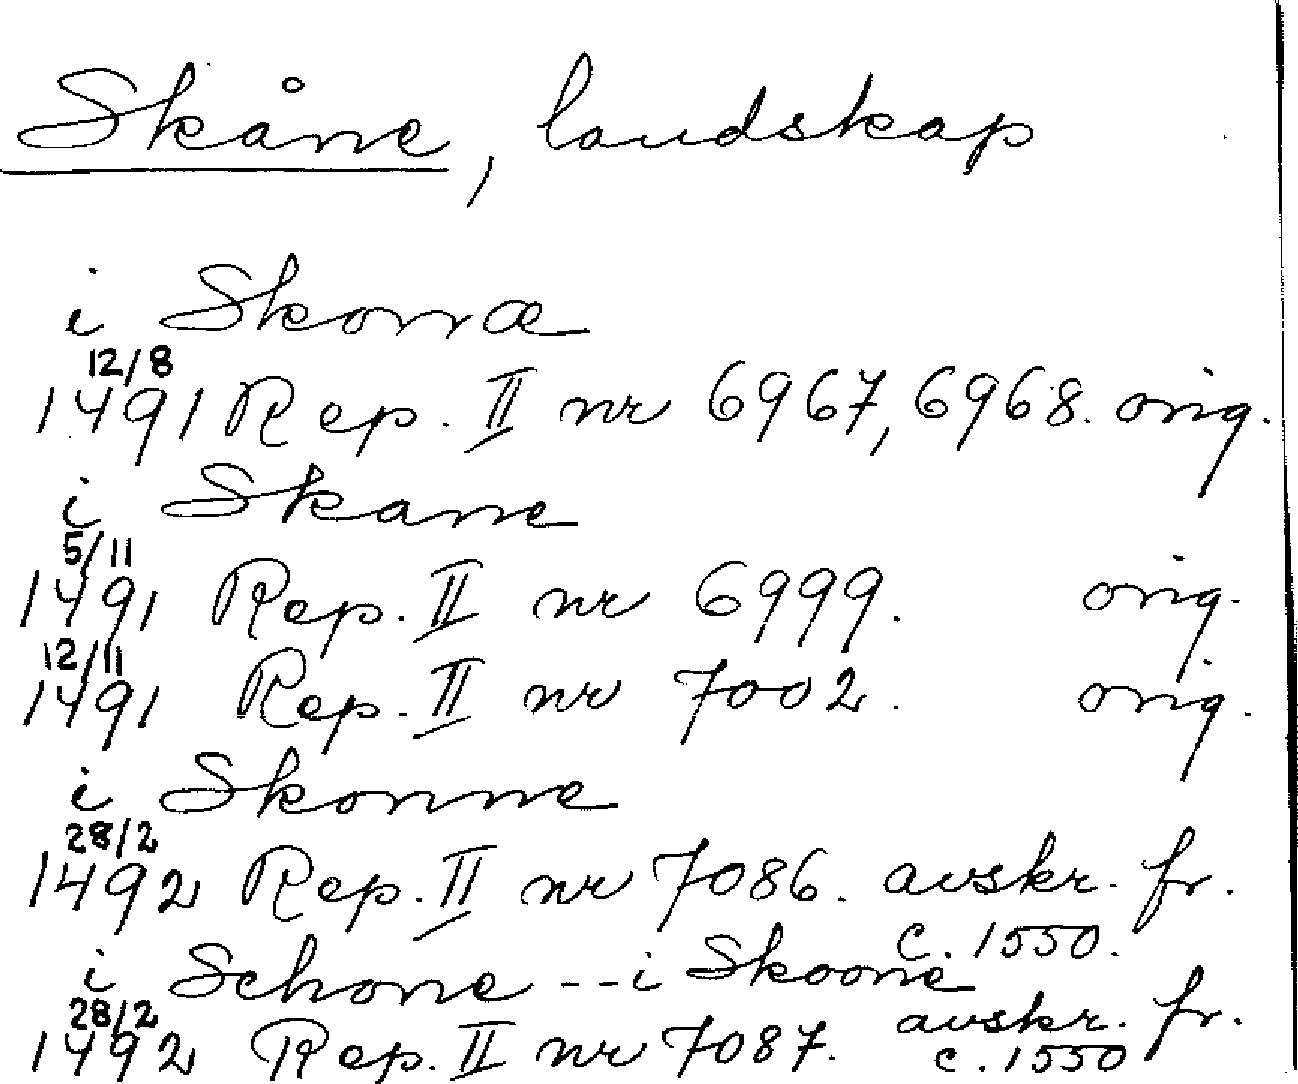 Skåne, landskap
i Skonæ
12/8
1491 Rep. II nr 6967, 6968. orig.
i Skane
5/11
1491 Rep. II nr 6999. orig.
12/11
1491 Rep. II nr 7002. orig.
i Skonne
28/2
1492 Rep. II nr 7086. avskr. fr.
c. 1550.
i Schone -- i Skoone
28/2
1492 Rep. II nr 7087. avskr. fr.
c. 1550